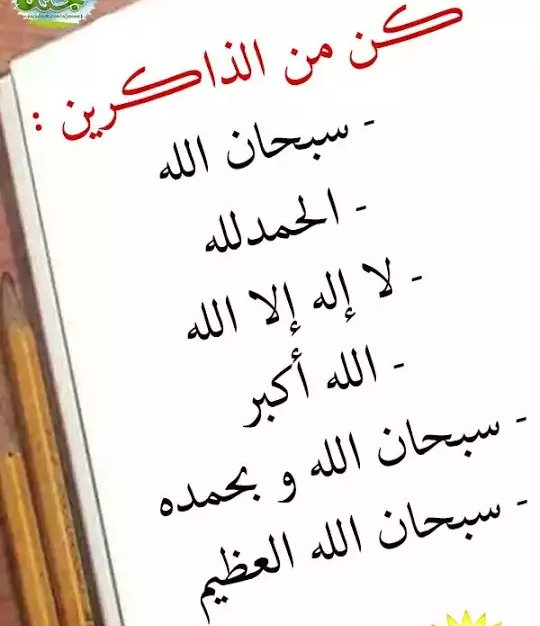 كن من الذاكرين :
- سبحان الله
- الحمدلله
- لا إله إلا الله
- الله أكبر
- سبحان الله و بحمده
- سبحان الله العظيم